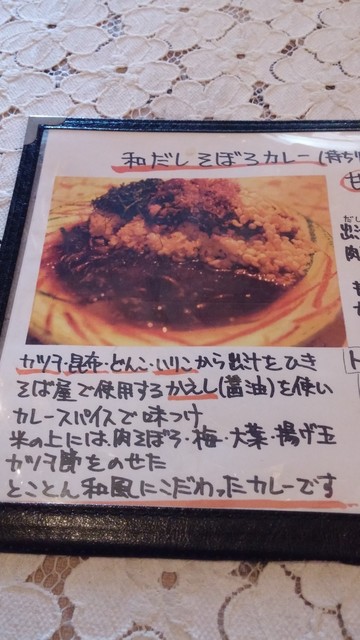 和だしそぼろカレー(持ち
カツオ・昆布・どんこ・いりこから出汁をひき
そば屋で使用するかえし(醤油)を使い
カレースパイスで味つけ
米の上には、肉そぼろ・梅・大葉・揚げ玉
カツオ節をのせた
とことん和風にこだわったカレーです
だし
出汁
肉